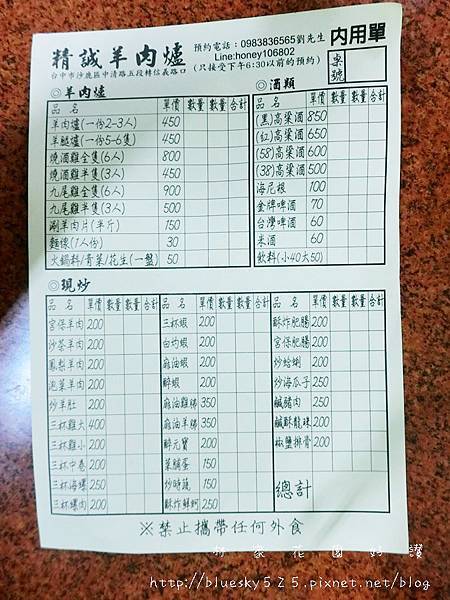 精誠羊肉爐
預約電話：0983836565劉先生
Line:honey106802
(只接受下午6:30以前的預約)
台中市沙鹿區中清路五段轉信義路口
內用單
桌號
◎羊肉爐
品 名 單價 數量 數量 合計
羊肉爐(一份2-3人) 450
羊腿爐(一份5-6隻) 450
燒酒雞全隻(6人) 800
燒酒雞半隻(3人) 450
九尾雞全隻(6人) 900
九尾雞半隻(3人) 500
涮羊肉片(半斤) 150
麵線(1人份) 30
火鍋料/青菜/花生(一盤) 50
◎酒類
品 名 單價 數量 數量 合計
(黑)高粱酒 850
(紅)高粱酒 650
(58)高粱酒 600
(38)高粱酒 500
海尼根 100
金牌啤酒 70
台灣啤酒 60
米酒 60
飲料(小40大50)
◎現炒
品 名 單價 數量 數量 合計
宮保羊肉 200
沙茶羊肉 200
鳳梨羊肉 200
泡菜羊肉 200
炒羊肚 200
三杯雞大 400
三杯雞小 200
三杯中卷 200
三杯海螺 250
三杯螺肉 200
品 名 單價 數量 數量 合計
三杯蝦 200
白灼蝦 200
麻油蝦 200
醉蝦 200
麻油雞佛 350
蔴油羊佛 350
醉元寶 200
菜脯蛋 150
炒時蔬 150
酥炸鮮蚵 250
品 名 單價 數量 數量 合計
酥炸肥腸 200
宮保肥腸 200
炒蛤蜊 200
炒海瓜子 250
鹹豬肉 250
鹹酥龍珠 200
椒鹽排骨 200
總計
※禁止攜帶任何外食
http://bluesky525.pixnet.net/blog